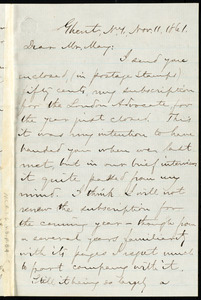 Ghent, N.Y., Nov. 11, 1861.
Dear Mr. May:
I send you
enclosed, (in postage stamps)
fifty cents, my subscription
for the London Advocate for
the year just closed. This
it was my intention to have
handed you when we last
met, but in our brief interview
it quite passed from my
mind. I think I will not
renew the subscription for
the coming year — though from
a several years familiarity
with its pages I regret much
to part company with it.
Still it being so largely a